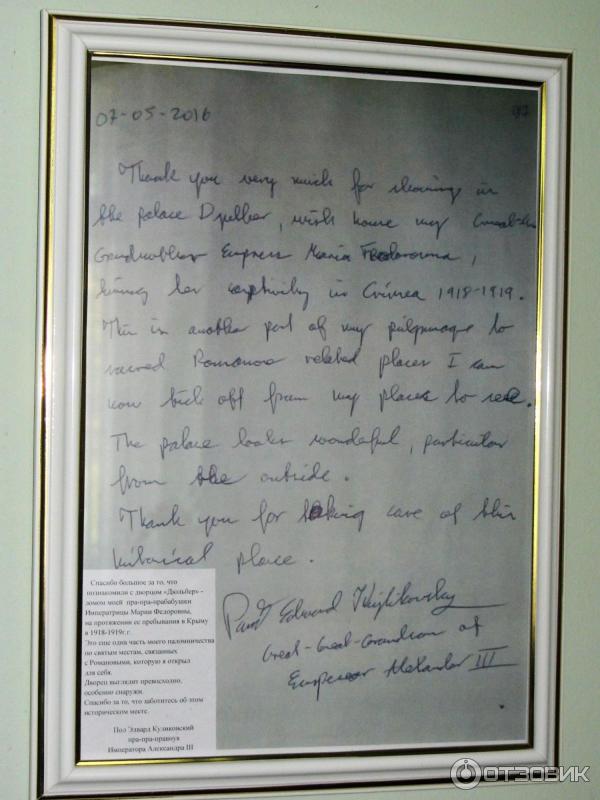 07-05-2016
97
Thank you very much for showing in
the palace Dyulber, with home my Great-Gr
Grandmother Empress Maria Feodorovna,
her captivity in Crimea 1918-1919.
This is another part of my pilgrimage to
sacred Romanov related places I can
now tick off from my places to see.
The palace looks wonderful, particular
from the outside.
Thank you for taking care of this
historical place.
Paul Edward Kulikovsky
Great-Great-Grandson of
Emperor Alexander III
Спасибо большое за то, что
познакомили с дворцом «Дюльбер» -
домом моей пра-пра-прабабушки
Императрицы Марии Федоровны,
на протяжении ее пребывания в Крыму
в 1918-1919г.г.
Это еще одна часть моего паломничества
по святым местам, связанных
с Романовыми, которую я открыл
для себя.
Дворец выглядит превосходно,
особенно снаружи.
Спасибо за то, что заботитесь об этом
историческом месте.
Пол Эдвард Куликовский
пра-пра-правнук
Императора Александра III
ОТЗОВИК